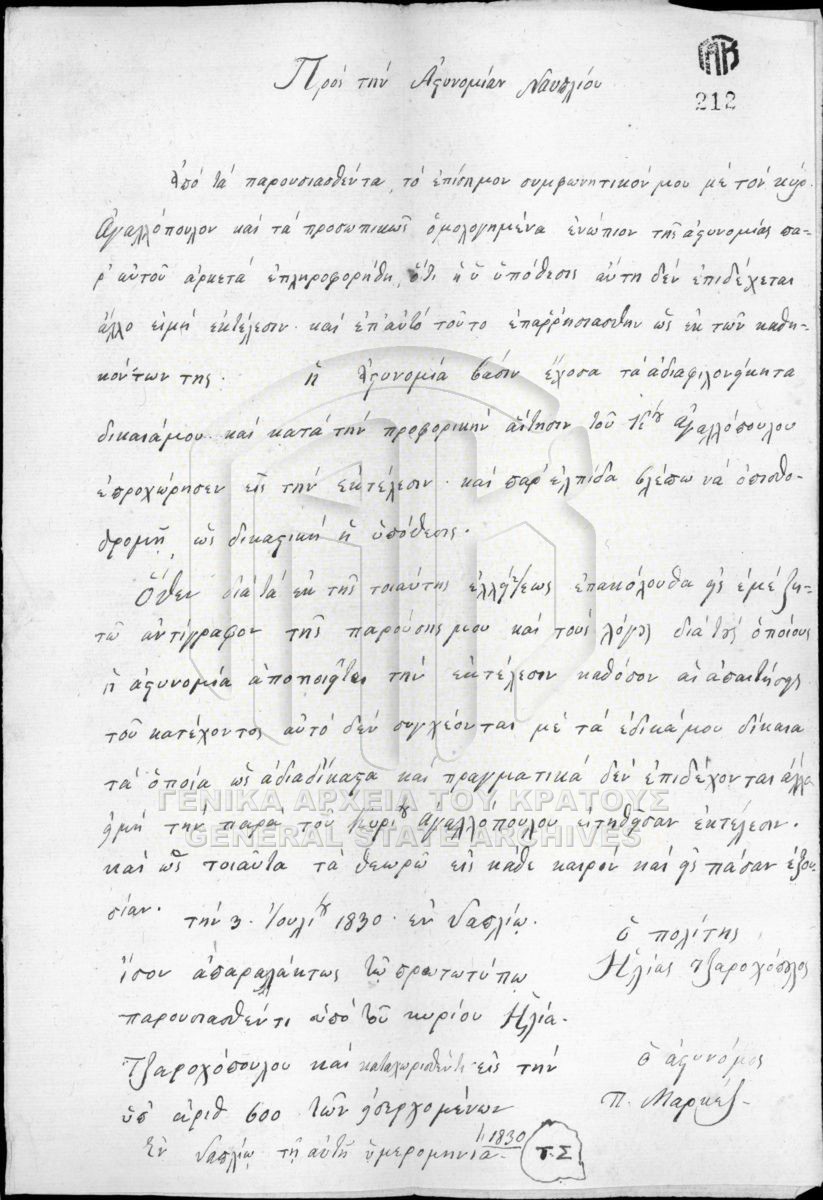 212
Πρὸς τὴν Ἀστυνομίαν Ναυπλίου
Ἀπό τὰ παρουσιασθέντα, τὸ ἐπίσημον συμφωνητικόν μου μὲ τὸν κύρ
Ἀγαλλόπουλον καὶ τὰ προσωπικῶς ὁμολογημένα ἐνώπιον τῆς ἀστυνομίας πα-
ρ' αὐτοῦ ἀρκετὰ ἐπληροφορήθη, ὅτι ἡ ὑπόθεσις αὕτη δὲν ἐπιδέχεται
ἄλλο εἰμὴ ἐκτέλεσιν· καὶ ἐπ' αὐτὸ τοῦτο ἐπαῤῥησιάσθην ὡς ἐκ τῶν καθη-
κόντων της. ἡ Ἀστυνομία βάσιν ἔχοσα τὰ ἀδιαφιλονήκητα
δικαιά μου καὶ κατὰ τὴν προφορικὴν αἴτησιν τοῦ Κ ἀγαλλόπουλου
ἐπροχώρησεν εἰς τὴν ἐκτέλεσιν· καὶ παρ' ἐλπίδα βλέπω νὰ ὀπισθο-
δρομῇ, ὡς δικαστικὴ ἡ ὑπόθεσις.
Ὅθεν διὰ τὰ ἐκ τῆς τοιαύτης ἐλλήψεως ἐπακόλουθα εἰς ἐμὲ ζη-
τῶ ἀντίγραφον τῆς παρούσης μου καὶ τοὺς λόγους διὰ τοὺς ὁποίους
ἡ ἀστυνομία ἀποποιεῖται τὴν ἐκτέλεσιν καθόσον αἱ ἀπαιτήσεις
τοῦ κατέχοντος αὐτὸ δὲν συγχέονται μὲ τὰ ἐδικά μου δίκαια
τὰ ὁποῖα ὡς ἀδιαδίκαστα καὶ πραγματικὰ δὲν ἐπιδέχονται ἄλλο
εἰμὴ τὴν παρὰ τοῦ κυρίου Ἀγαλλόπουλου ἐκτέλεσιν.
καὶ ὡς τοιαῦτα τὰ θεωρῶ εἰς κάθε καιρὸν καὶ εἰς πᾶσαν ἐξου-
σίαν. τὴν 3. Ἰουλίου 1830. ἐν Ναυπλίῳ.
ὁ πολίτης
Ἠλίας Τζαροχόπουλος
ἴσον ἀπαραλάκτως τῷ πρωτοτύπῳ
παρουσιασθέντι ὑπὸ τοῦ κυρίου Ἠλία
Τζαροχόπουλου καὶ καταχωρισθέντι εἰς τὴν
ὑπ' ἀριθ 600 τῶν εἰσερχομένων
Ἐν Ναυπλίῳ τῇ αὐτῇ ἡμερομηνίᾳ 1830
ὁ ἀστυνόμος
Π. Μαρκέζ
Τ.Σ
ΓΕΝΙΚΑ ΑΡΧΕΙΑ ΤΟΥ ΚΡΑΤΟΥΣ
GENERAL STATE ARCHIVES